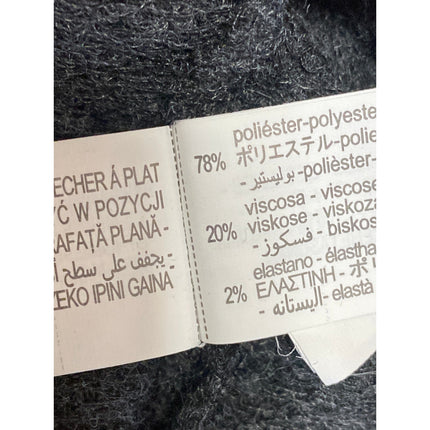 ECHER Á PLAT
Ć W POZYCJI
RAFAȚĂ PLANĂ -
- يجفف على سطح
ZEKO IPINI GAINA
78% poliéster-polyeste
ポリエステル-polie
- بوليستير -polièster-
20% viscosa - viscose
viskose - viskoza
- فسكوز - biskos
2% elastano - élastha
ΕΛΑΣΤΙΝΗ - ポリ
- اليستانه - elastà